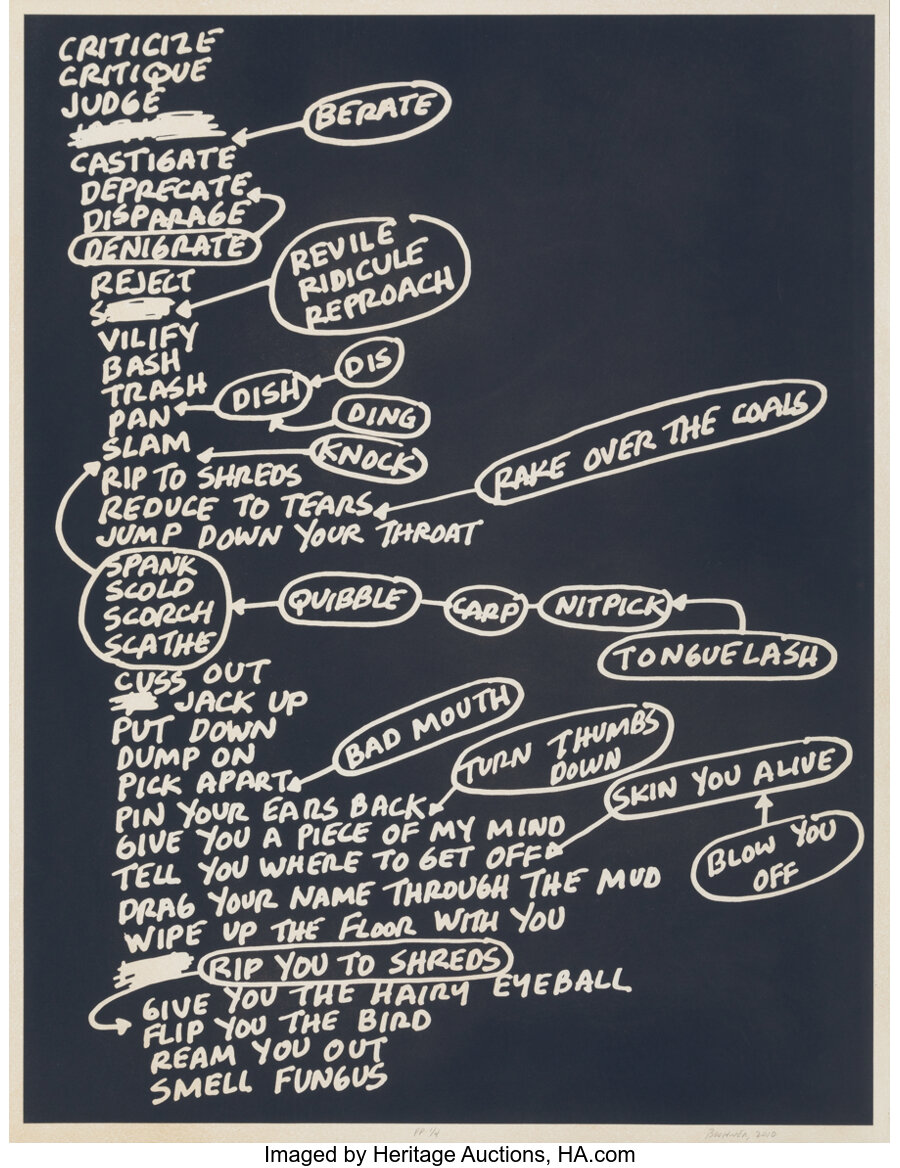 CRITICIZE
CRITIQUE
JUDGE
BERATE
CASTIGATE
DEPRECATE
DISPARAGE
DENIGRATE
REVILE
RIDICULE
REPROACH
REJECT
S
VILIFY
BASH
TRASH
DIS
DISH
PAN
DING
SLAM
KNOCK
RAKE OVER THE COALS
RIP TO SHREDS
REDUCE TO TEARS
JUMP DOWN YOUR THROAT
SPANK
SCOLD
SCORCH
SCATHE
QUIBBLE
CARP
NITPICK
TONGUELASH
CUSS OUT
JACK UP
PUT DOWN
DUMP ON
PICK APART
BAD MOUTH
TURN THUMBS
DOWN
SKIN YOU ALIVE
BLOW YOU
OFF
PIN YOUR EARS BACK
GIVE YOU A PIECE OF MY MIND
TELL YOU WHERE TO GET OFF
DRAG YOUR NAME THROUGH THE MUD
WIPE UP THE FLOOR WITH YOU
RIP YOU TO SHREDS
GIVE YOU THE HAIRY EYEBALL
FLIP YOU THE BIRD
REAM YOU OUT
SMELL FUNGUS
PP 1/4
Bochner, 2010
Imaged by Heritage Auctions, HA.com